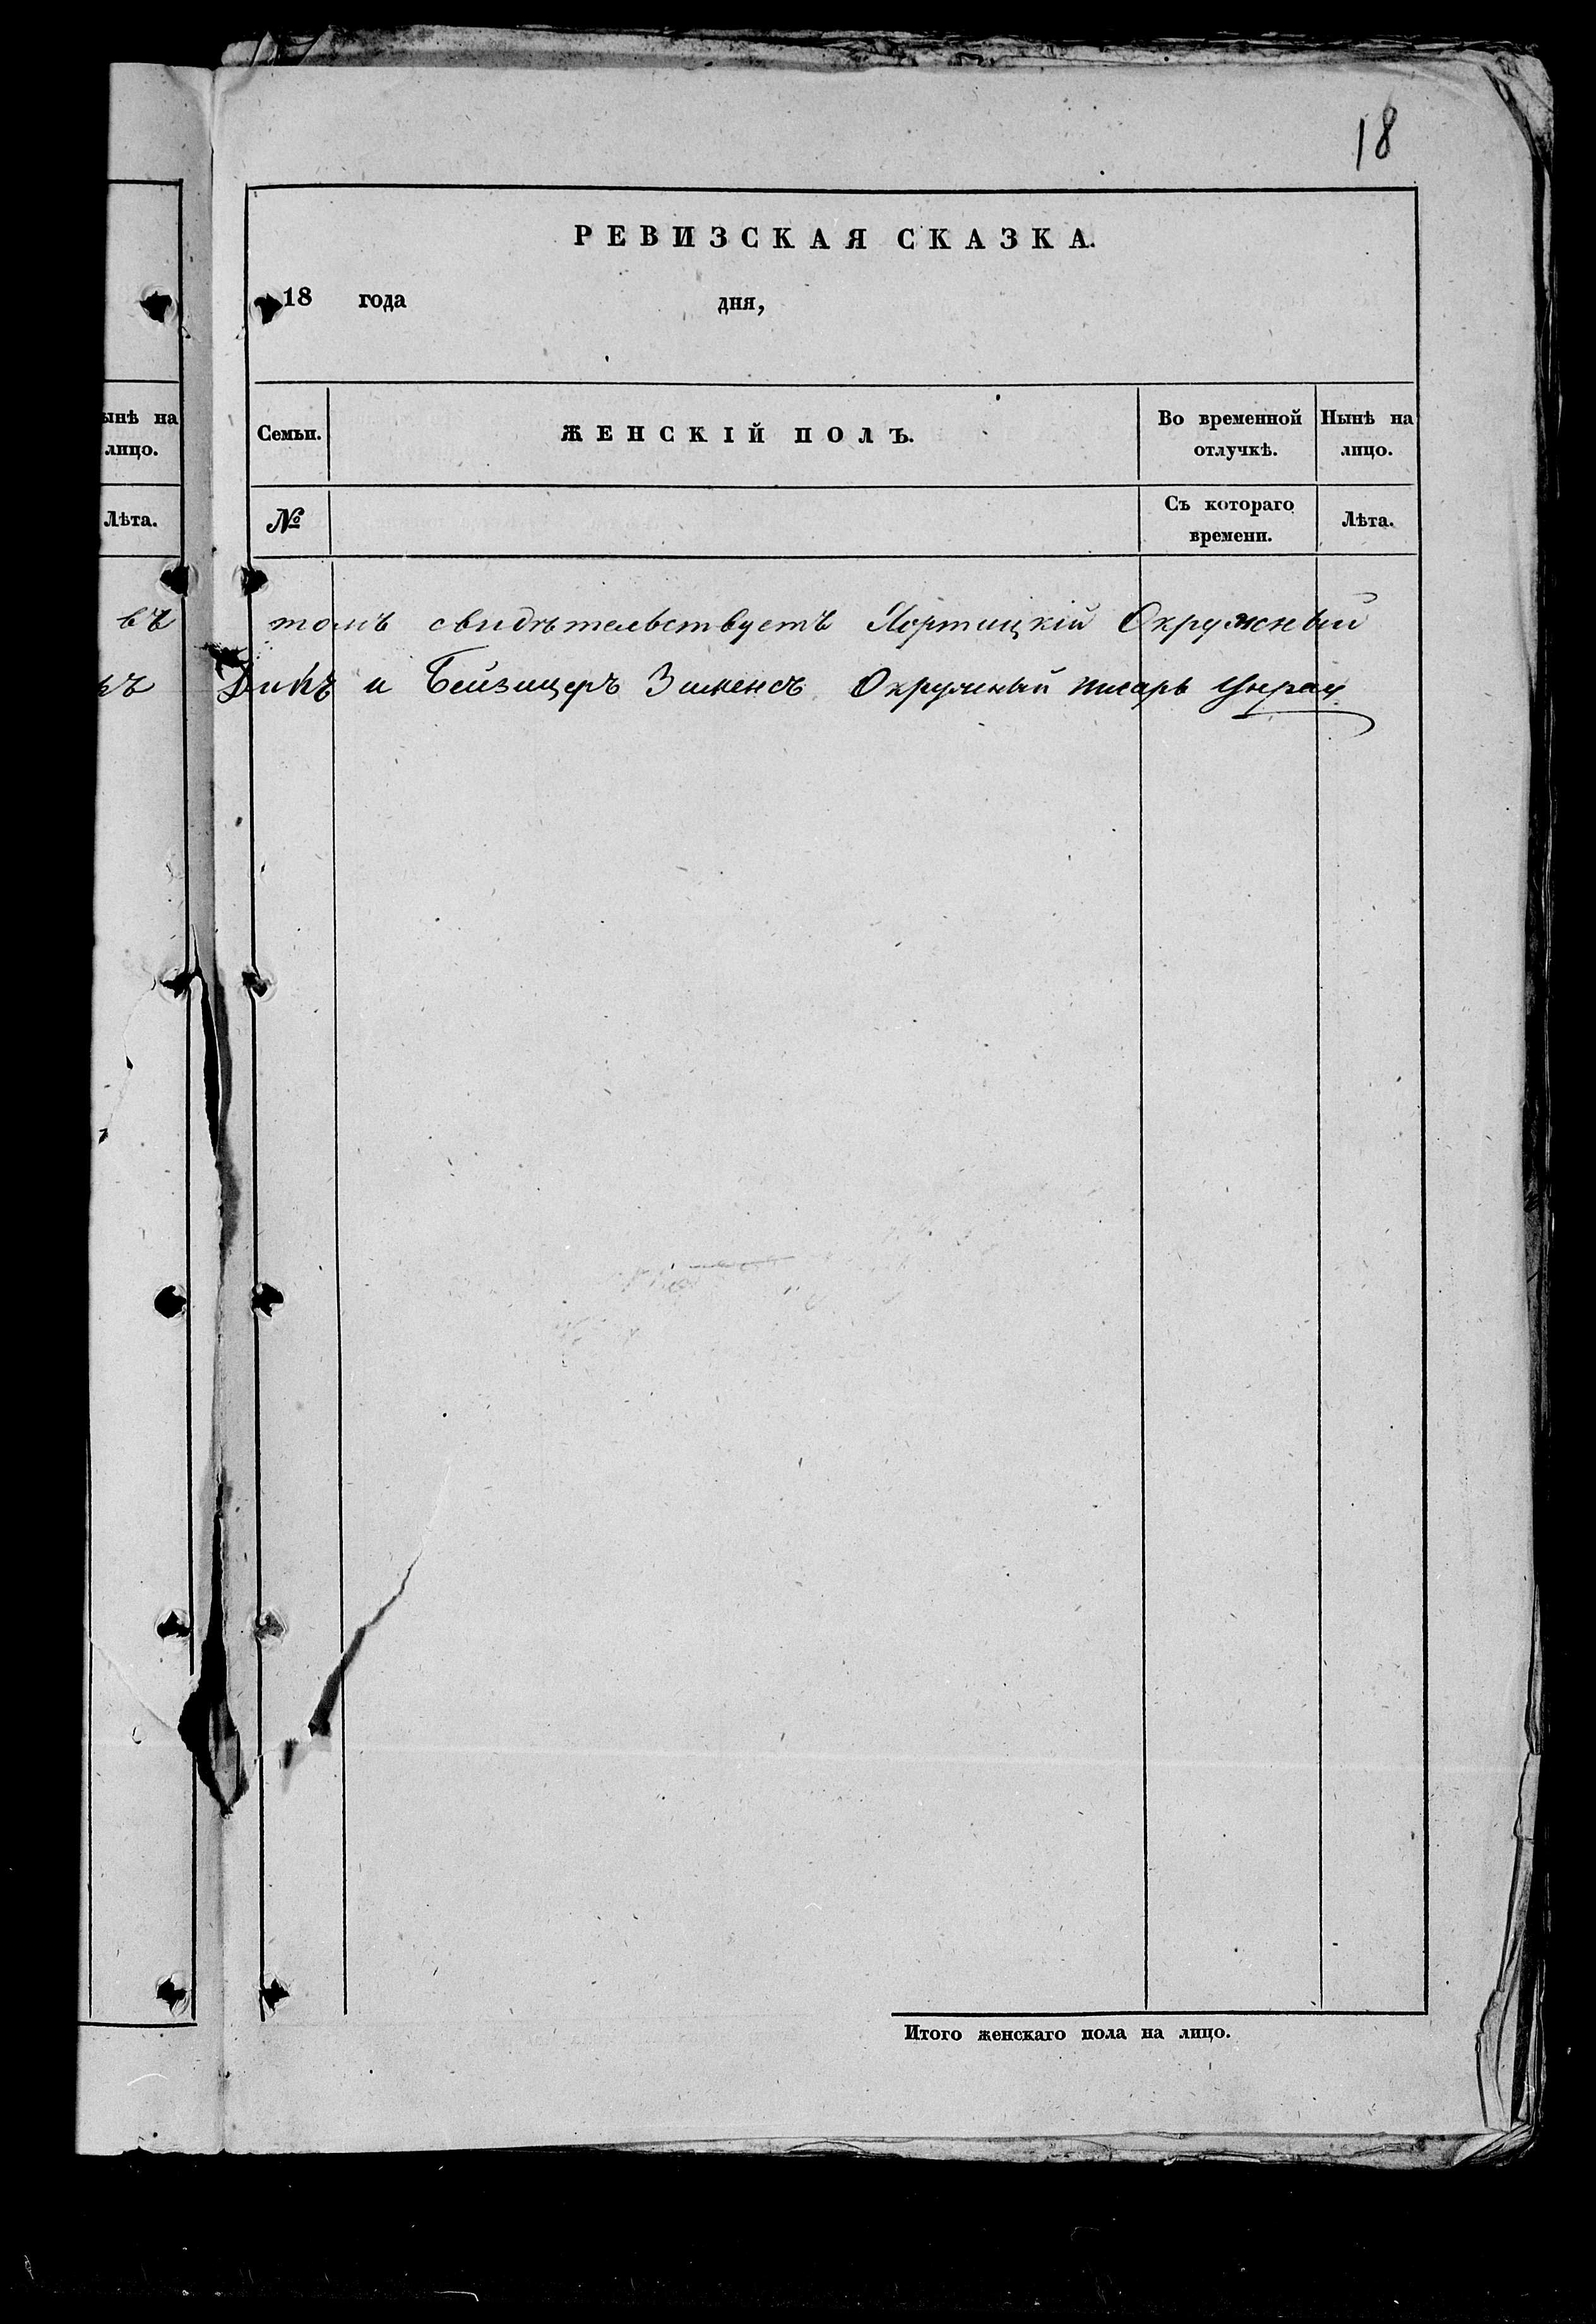 18
РЕВИЗСКАЯ СКАЗКА.
18 года дня,
ынѣ на
лицо.
Лѣта.
Семьи.
ЖЕНСКІЙ ПОЛЪ.
Во временной
отлучкѣ.
Нынѣ на
лицо.
№
Съ котораго
времени.
Лѣта.
въ томъ свидѣтельствуетъ Хортицкій Окружный
Дикъ и Бейзицеръ Зименсъ Окружный писарь
Итого женскаго пола на лицо.